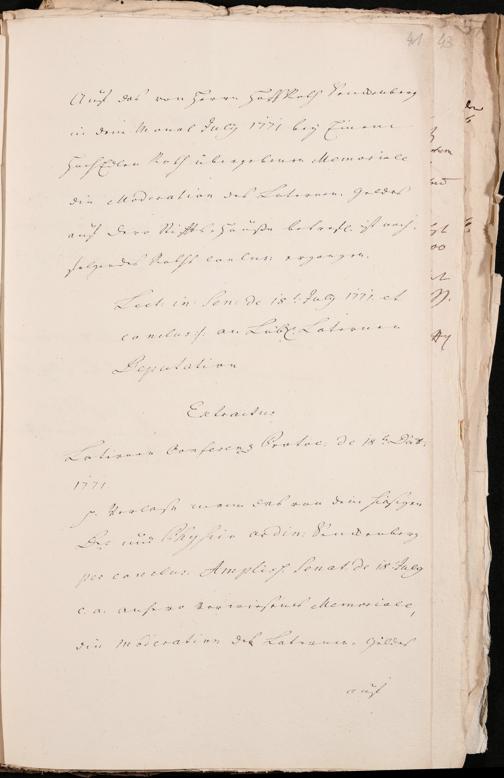 41 43
Auf das von Herrn Hoffrath Senckenberg
in dem Monat July 1771 bey Einem
HochEdlen Rath übergebenen Memoriale
die Moderation des Laternen-Geldes
auf dero Stiffts-Häuße betrefl. ist nach-
folgendes Raths conclus: ergangen.
Lect: in Sen: de 18t. July 1771. et
conclus: an Löbl. Laternen
Deputation
Extractus
Laternen Conferenz Protoc: de 18t. Oct:
1771
p. Verlase man das von dem hiesigen
Dr. und Physico ordin: Senckenberg
per conclus. Ampliss. Senat. de 18. July
c. a. anhero verwiesene Memoriale,
die moderation des Laternen-Geldes
auf